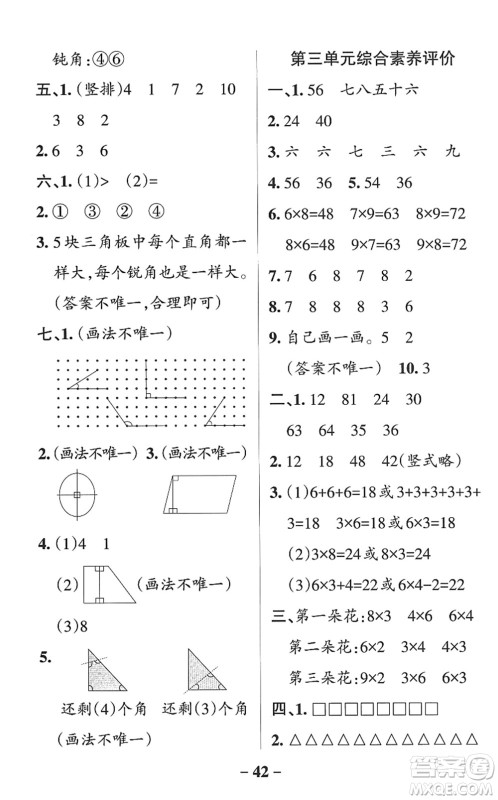 钝角:④⑥
五、1.(竖排)4 1 7 2 10
3 8 2
2.6 3 6
六、1.(1)> (2)=
2.① ③ ② ④
3.5块三角板中每个直角都一
样大,每个锐角也是一样大。
(答案不唯一,合理即可)
七、1.(画法不唯一)
2.(画法不唯一) 3.(画法不唯一)
4.(1)4 1
(2) (画法不唯一)
(3)8
5.
还剩(4)个角 还剩(3)个角
(画法不唯一)
第三单元综合素养评价
一、1.56 七八五十六
2.24 40
3.六 六 七 三 六 九
4.56 36 5.54 36
6.6×8=48 7×9=63 8×9=72
8×6=48 9×7=63 9×8=72
7.7 6 8 7 8 2
8.7 8 8 2
9.自己画一画。5 2
(答案不唯一) 10.3
二、1.12 81 24 30
63 64 35 36
2.12 18 48 42(竖式略)
3.(1)6+6+6=18或3+3+3+3+
3+3=18 3×6=18或6×3=18
(2)6×3+4=22或
6+6+6+4=22
(3)6×3-2=16或
6+6+4=16
三、第一朵花:8×3 4×6 6×4
第二朵花:6×2 3×4 4×3
第三朵花:9×2 6×3 3×6
四、1.□□□□□□□□
2.△△△△△△△△△△△△
- 42 -